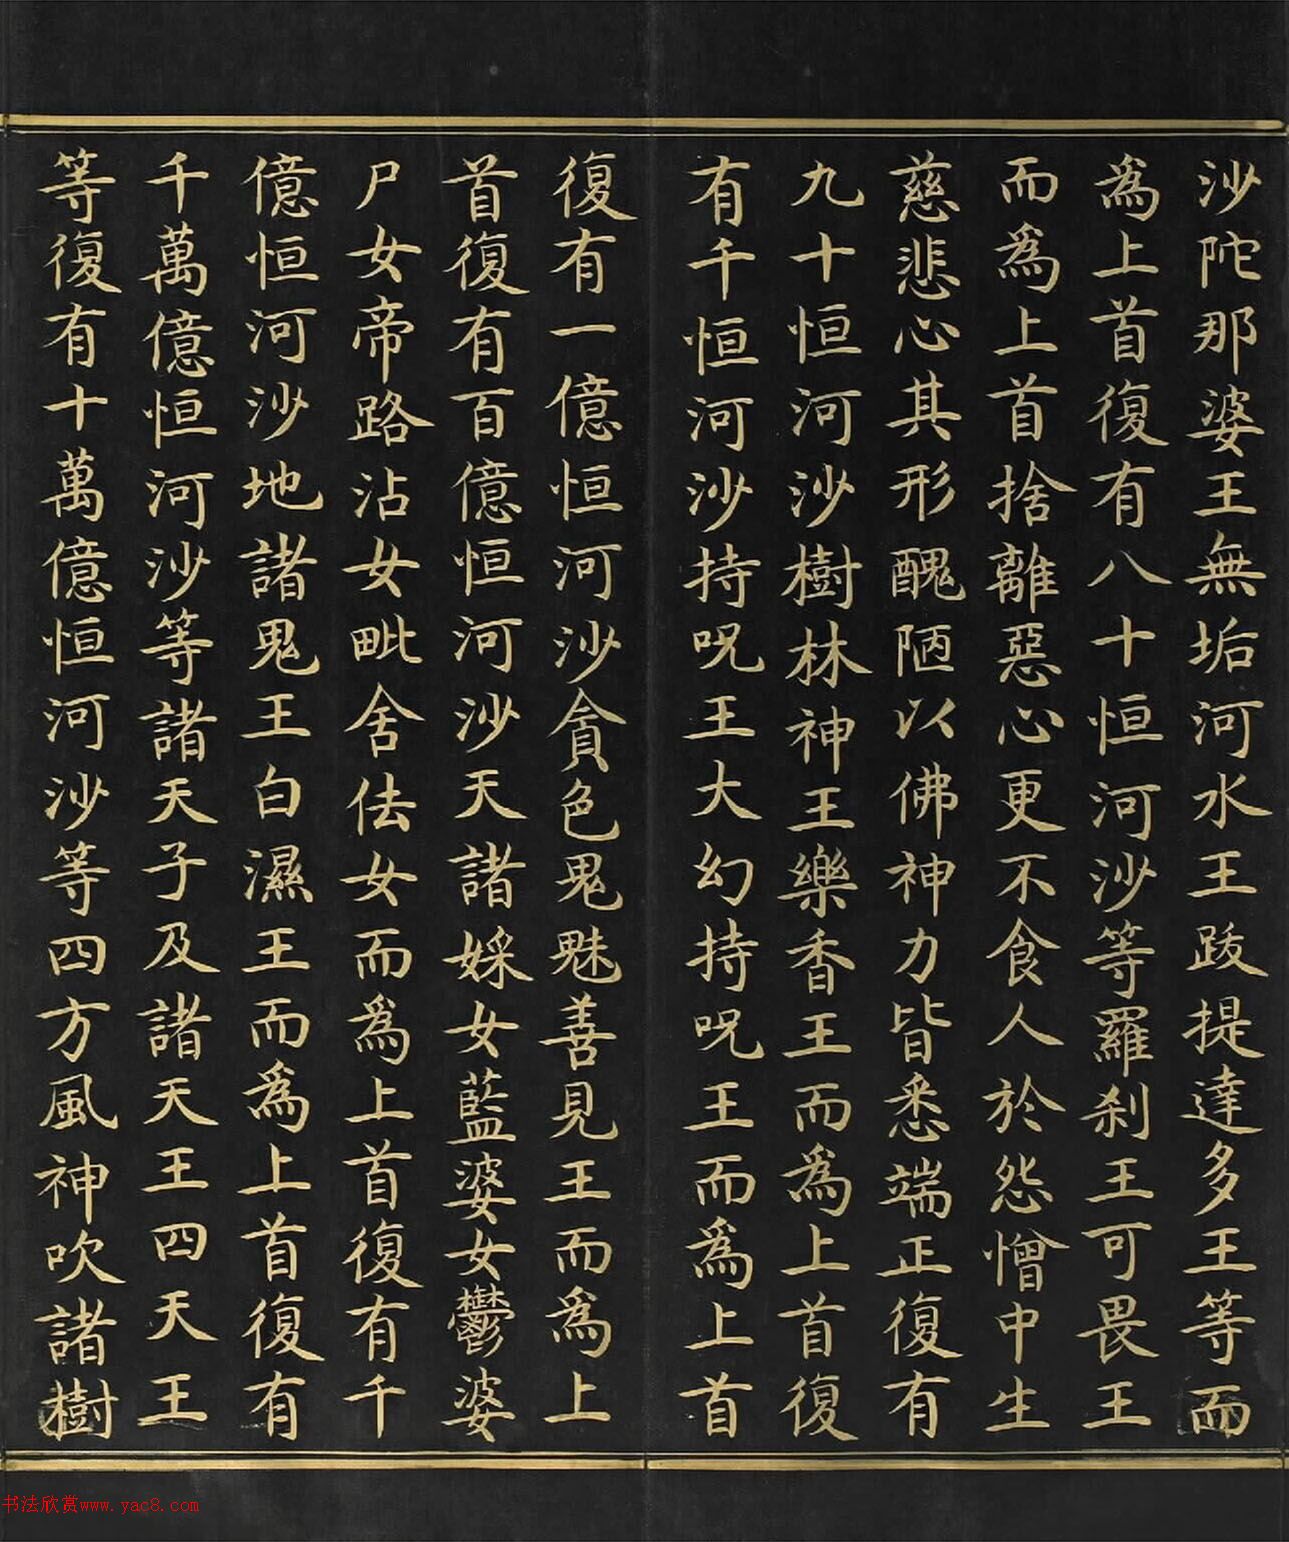 沙陀那婆王無垢河水王跋提達多王等而
為上首復有八十恒河沙等羅刹王可畏王
而為上首捨離惡心更不食人於怨憎中生
慈悲心其形醜陋以佛神力皆悉端正復有
九十恒河沙樹林神王樂香王而為上首復
有千恒河沙持呪王大幻持呪王而為上首
復有一億恒河沙貪色鬼魅善見王而為上
首復有百億恒河沙天諸婇女藍婆女鬱婆
尸女帝路沾女毗舍佉女而為上首復有千
億恒河沙地諸鬼王白濕王而為上首復有
千萬億恒河沙等諸天子及諸天王四天王
等復有十萬億恒河沙等四方風神吹諸樹
书法欣赏www.yac8.com